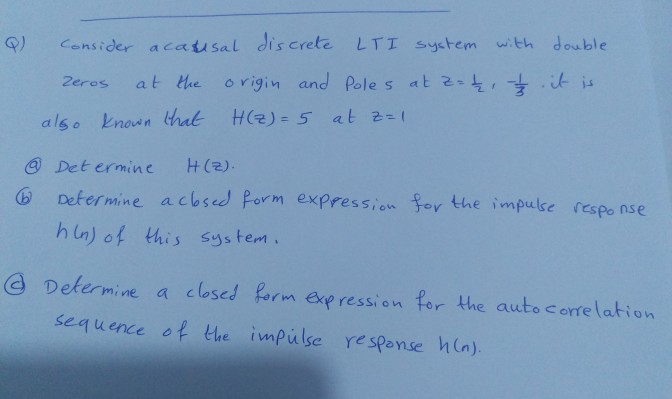 Q) Consider a causal discrete LTI system with double
zeros at the origin and Poles at z = 1/2, -1/3 . it is
also known that H(z) = 5 at z = 1
ⓐ Determine H(z).
ⓑ Determine a closed form expression for the impulse response
h(n) of this system.
ⓒ Determine a closed form expression for the autocorrelation
sequence of the impulse response h(n).